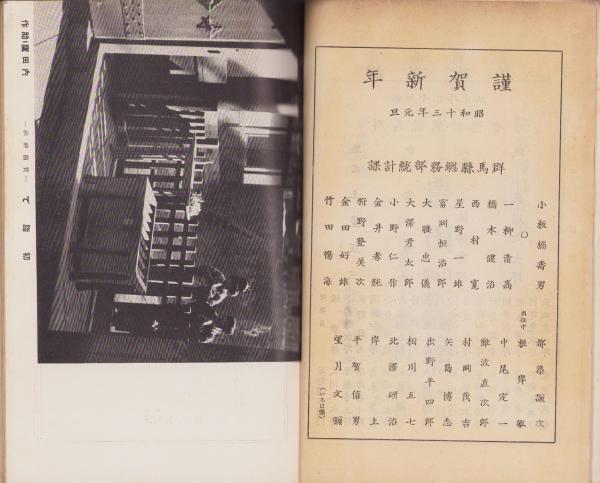 謹賀新年
昭和十三年元旦
群馬縣總務部統計課
小板橋壽男
○
一柳清高
橋本健治
西村寛
星野一雄
富岡恒治郎
大羅忠儀
大澤彦太郎
小野仁作
金井孝純
新野登美次
金田好雄
竹田暢海
都築謙次
出征中 根岸敏
中尾定一
難波直次郎
村岡茂吉
矢島博志
出野平四郎
相川五七
北澤碩治
岸上
平賀信男
望月文彌
(いろは順)
初詣で
内田耀二郎作